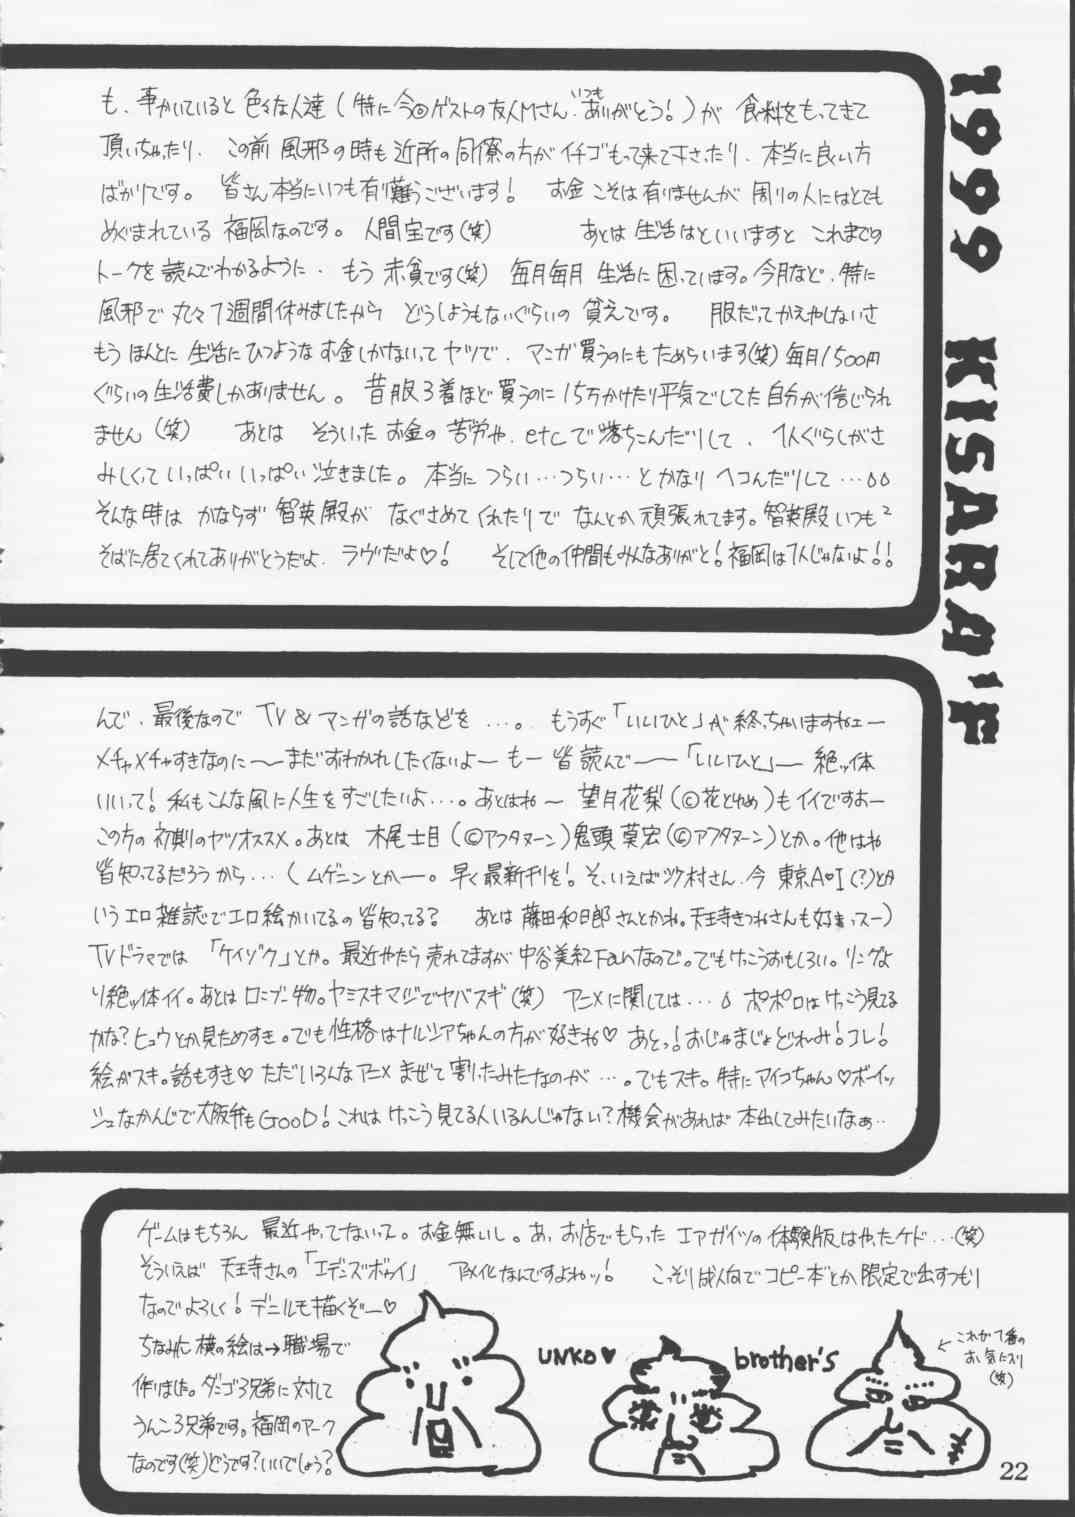 も、事かいていると色々な人達(特に今回ゲストの友人Mさん、いつもありがとう!)が 食料をもってきて
頂いちゃったり、この前 風邪の時も近所の同僚の方がイチゴもって来て下さったり、本当に良い方
ばかりです。 皆さん本当にいつも有り難うございます! お金こそは有りませんが 周りの人にはとても
めぐまれている 福岡なのです。人間宝です(笑) あとは生活はといいますと これまでの
トークを読んでわかるように、もう赤貧です(笑) 毎月毎月 生活に困っています。今月など、特に
風邪で丸々1週間休みましたから どうしようもないぐらいの貧えです。 服だってかえやしないさ
もうほんとに生活にひつようなお金しかないってヤツで、マンガ買うのにもためらいます(笑)毎月1500円
ぐらいの生活費しかありません。昔服3着ほど買うのに15万かけたり平気でしてた自分が信じられ
ません(笑) あとは そういったお金の苦労や、etcで落ちこんだりして、1人ぐらしがさ
みしくっていっぱいいっぱい泣きました。本当につらい…つらい…とかなりヘコんだりして…
そんな時は かならず智英殿が なぐさめてくれたりで なんとか頑張れてます。智英殿いつも
そばに居てくれてありがとうだよ、ラヴだよ♡! そして他の仲間もみんなありがと!福岡は1人じゃないよ!!
1999 KISARA'F
んで、最後なのでTV&マンガの話などを…。もうすぐ「いいひと」が終っちゃいますねェー
メチャメチャすきなのに〜まだおわかれしたくないよーもー皆読んで〜「いいひと」ー絶ッ体
いいって!私もこんな風に人生をすごしたいよ…。あとはね〜望月花梨(©花とゆめ)もイイですおー
この方の初期のヤツオススメ。あとは 木尾士目(©アフタヌーン)鬼頭莫宏(©アフタヌーン)とか。他はね
皆知ってるだろうから…(ムゲニンとかー。早く最新刊を!。そ、いえば沙村さん、今 東京A・I(?)とか
いうエロ雑誌でエロ絵かいてるの皆知ってる? あとは 藤田和日郎さんとかね。天王寺きつねさんも好きっスー)
TVドラマでは「ケイゾク」とか。最近やたら売れてますが中谷美紀Fanなので。でもけっこうおもしろい。リングよ
り絶ッ体イイ。あとはロニブー物。ヤミスキマジでヤバスギ(笑) アニメに関しては… ポポロはけっこう見てる
かな?ヒュウとか見ためすき。でも性格はナルシアちゃんの方が好きね♡ あとっ!おじゃまじょどれみ!コレ!
絵がスキ。話もすき♡ ただいろんなアニメまぜて割ったみたなのが…。でもスキ。特にアイコちゃん♡ボーイッ
シュなかんじで大阪弁もGooD!これはけっこう見てる人いるんじゃない?機会があれば 本出してみたいなぁ‥
ゲームはもちろん 最近やってないって。お金無いし。あ、お店でもらった エアガイツの体験版はやったケド…(笑)
そういえば 天王寺さんの「エデンズボゥイ」 アニメ化なんですよねッ! こっそり友人内でコピー本とか限定で出すつもり
なのでよろしく!デニルも描くぞー♡
ちなみに横の絵は→職場で
作りました。ダンゴ3兄弟に対して
うんこ3兄弟です。福岡のアーク
なのです(笑)どうです?いいでしょう?
UNKO♥ brother's
←これが1番の
お気に入り
(笑)
22